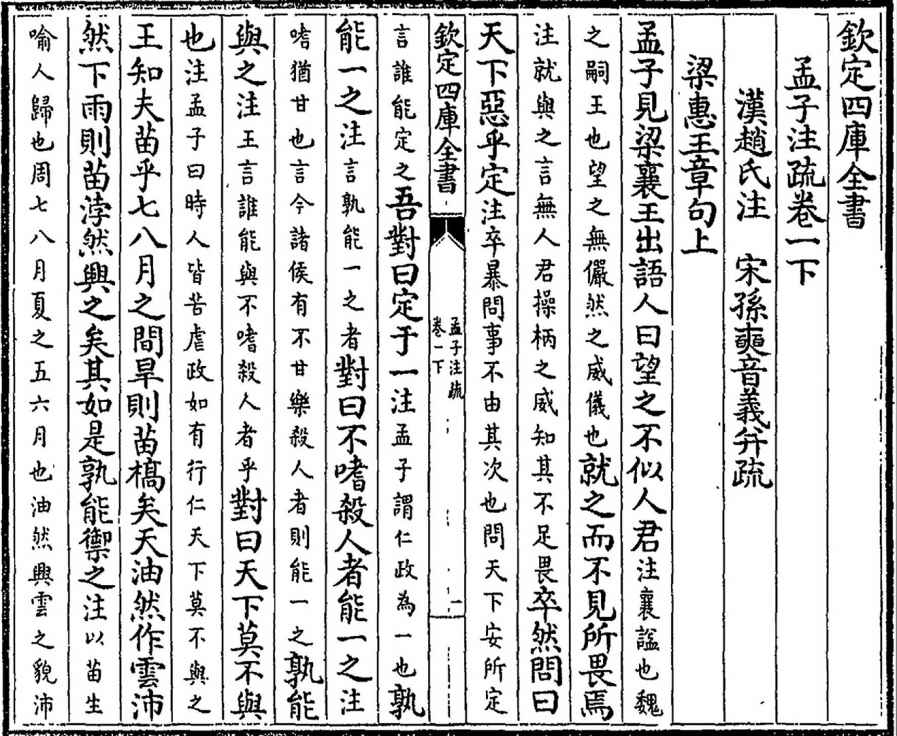 欽定四庫全書
孟子注疏卷一下
漢趙氏注 宋孫奭音義并疏
梁惠王章句上
孟子見梁襄王出語人曰望之不似人君注襄諡也魏
之嗣王也望之無儼然之威儀也就之而不見所畏焉
注就與之言無人君操柄之威知其不足畏卒然問曰
天下惡乎定注卒暴問事不由其次也問天下安所定
欽定四庫全書
孟子注疏
卷一下
一
言誰能定之吾對曰定于一注孟子謂仁政為一也孰
能一之注言孰能一之者對曰不嗜殺人者能一之注
嗜猶甘也言今諸侯有不甘樂殺人者則能一之孰能
與之注王言誰能與不嗜殺人者乎對曰天下莫不與
也注孟子曰時人皆苦虐政如有行仁天下莫不與之
王知夫苗乎七八月之間旱則苗槁矣天油然作雲沛
然下雨則苗浡然興之矣其如是孰能禦之注以苗生
喻人歸也周七八月夏之五六月也油然興雲之貌沛